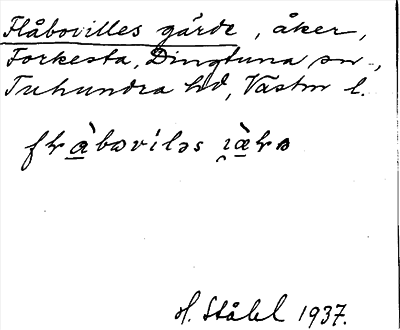 Flåbovilles gärde, åker,
Forkesta, Dingtuna sn.,
Tuhundra hd, Västm l.
H. Ståhl 1937.